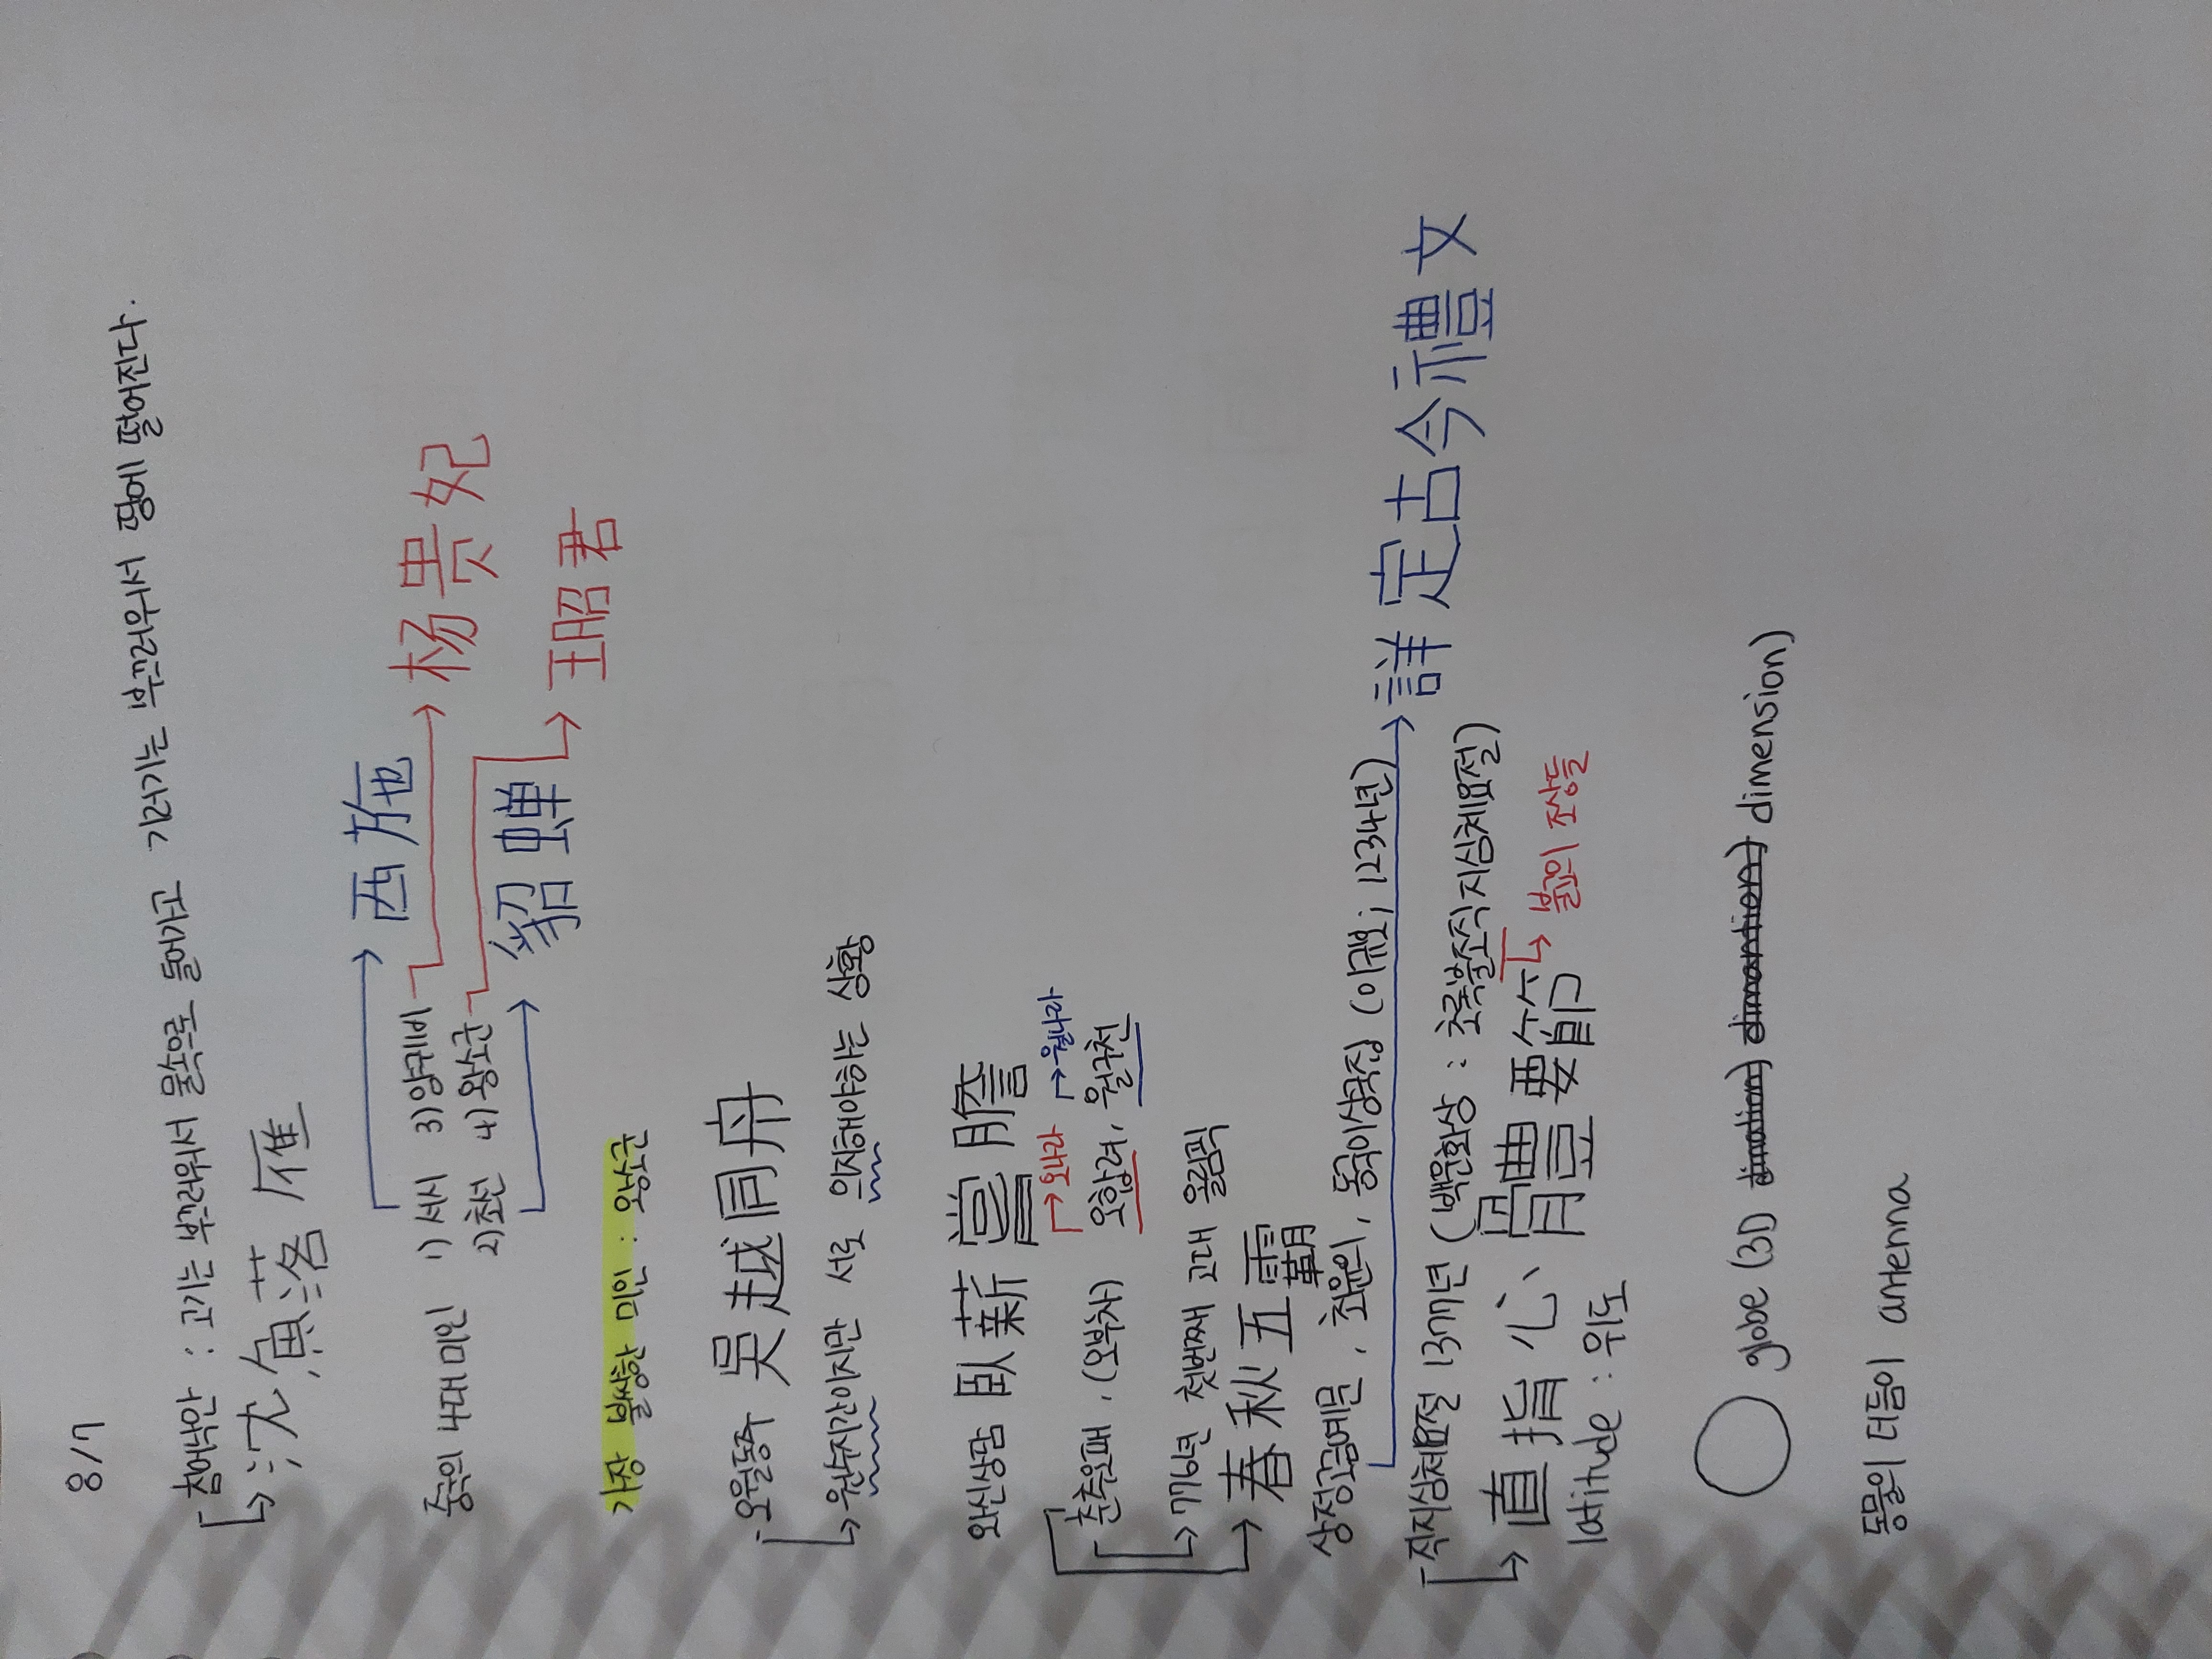 8/7
침어낙안 : 고기는 부끄러워서 물속으로 들어가고 기러기는 부끄러워서 땅에 떨어진다.
沈魚落雁
중국의 4대미인 1) 서시 3) 양귀비
2) 초선 4) 왕소군
西施
杨贵妃
貂蝉
王昭君
가장 불쌍한 미인 : 왕소군
오월동주 吳越同舟
원수지간이지만 서로 의지해야하는 상황
와신상담 臥薪嘗膽
오나라 월나라
춘추오패, (오부차) 오합려, 월구천
776년 첫번째 고대 올림픽
春秋五霸
상정고금예문, 최윤의, 동국이상국집 (이규보; 1234년)
詳定古今禮文
직지심체요절 1377년 (백운화상 : 초록불조직지심체요절)
불교의 조상들
直指心體要節
latitude : 위도
globe (3D dimension)
동물의 더듬이 antenna